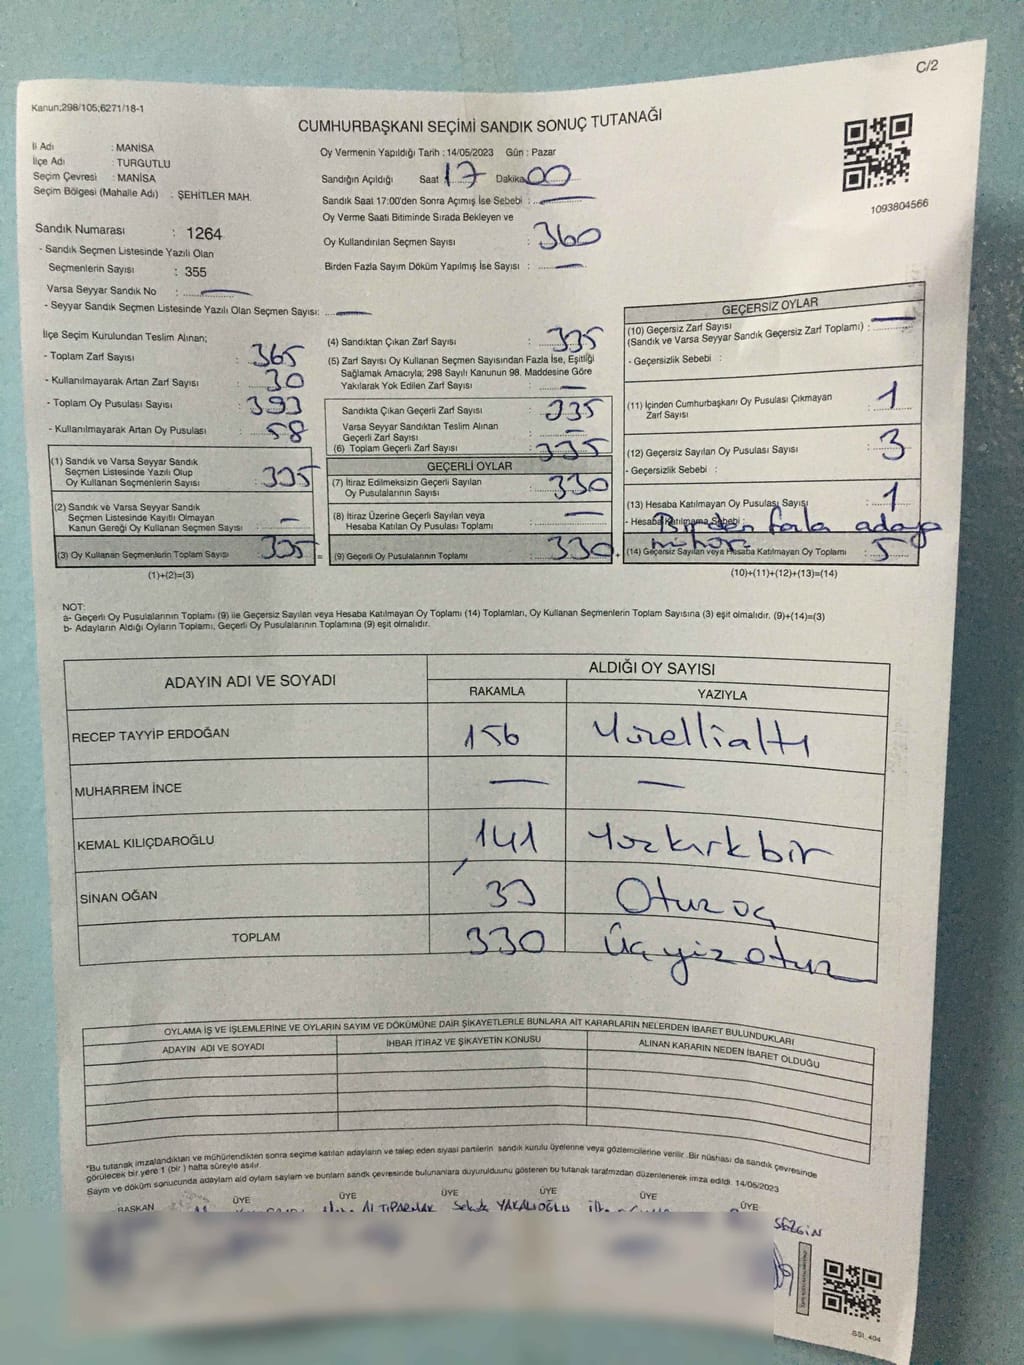 C/2
Kanun;298/105,6271/18-1
CUMHURBAŞKANI SEÇİMİ SANDIK SONUÇ TUTANAĞI
İl Adı : MANİSA
İlçe Adı : TURGUTLU
Seçim Çevresi : MANİSA
Seçim Bölgesi (Mahalle Adı) : ŞEHİTLER MAH.
Sandık Numarası : 1264
- Sandık Seçmen Listesinde Yazılı Olan
Seçmenlerin Sayısı : 355
Varsa Seyyar Sandık No : —
- Seyyar Sandık Seçmen Listesinde Yazılı Olan Seçmen Sayısı: —
Oy Vermenin Yapıldığı Tarih : 14/05/2023 Gün : Pazar
Sandığın Açıldığı Saat 17 Dakika 00
Sandık Saat 17:00'den Sonra Açımış İse Sebebi : —
Oy Verme Saati Bitiminde Sırada Bekleyen ve
Oy Kullandırılan Seçmen Sayısı : 360
Birden Fazla Sayım Döküm Yapılmış İse Sayısı : —
1093804566
İlçe Seçim Kurulundan Teslim Alınan;
- Toplam Zarf Sayısı : 365
- Kullanılmayarak Artan Zarf Sayısı : 30
- Toplam Oy Pusulası Sayısı : 393
- Kullanılmayarak Artan Oy Pusulası : 58
(1) Sandık ve Varsa Seyyar Sandık
Seçmen Listesinde Yazılı Olup
Oy Kullanan Seçmenlerin Sayısı : 335
(2) Sandık ve Varsa Seyyar Sandık
Seçmen Listesinde Kayıtlı Olmayan
Kanun Gereği Oy Kullanan Seçmen Sayısı : —
(3) Oy Kullanan Seçmenlerin Toplam Sayısı : 335 =
(1)+(2)=(3)
(4) Sandıktan Çıkan Zarf Sayısı : 335
(5) Zarf Sayısı Oy Kullanan Seçmen Sayısından Fazla İse, Eşitliği
Sağlamak Amacıyla; 298 Sayılı Kanunun 98. Maddesine Göre
Yakılarak Yok Edilen Zarf Sayısı : —
Sandıkta Çıkan Geçerli Zarf Sayısı : 335
Varsa Seyyar Sandıktan Teslim Alınan
Geçerli Zarf Sayısı : —
(6) Toplam Geçerli Zarf Sayısı : 335
GEÇERLİ OYLAR
(7) İtiraz Edilmeksizin Geçerli Sayılan
Oy Pusulalarının Sayısı : 330
(8) İtiraz Üzerine Geçerli Sayılan veya
Hesaba Katılan Oy Pusulası Toplamı : —
(9) Geçerli Oy Pusulalarının Toplamı : 330 +
GEÇERSİZ OYLAR
(10) Geçersiz Zarf Sayısı
(Sandık ve Varsa Seyyar Sandık Geçersiz Zarf Toplamı) : —
- Geçersizlik Sebebi :
(11) İçinden Cumhurbaşkanı Oy Pusulası Çıkmayan
Zarf Sayısı : 1
(12) Geçersiz Sayılan Oy Pusulası Sayısı : 3
- Geçersizlik Sebebi :
(13) Hesaba Katılmayan Oy Pusulası Sayısı : 1
- Hesaba Katılmama Sebebi : Birden fazla adaya
mühür
(14) Geçersiz Sayılan veya Hesaba Katılmayan Oy Toplamı : 5
(10)+(11)+(12)+(13)=(14)
NOT:
a- Geçerli Oy Pusulalarının Toplamı (9) ile Geçersiz Sayılan veya Hesaba Katılmayan Oy Toplamı (14) Toplamları, Oy Kullanan Seçmenlerin Toplam Sayısına (3) eşit olmalıdır. (9)+(14)=(3)
b- Adayların Aldığı Oyların Toplamı, Geçerli Oy Pusulalarının Toplamına (9) eşit olmalıdır.
ADAYIN ADI VE SOYADI ALDIĞI OY SAYISI
RAKAMLA YAZIYLA
RECEP TAYYİP ERDOĞAN 156 Yüzellialtı
MUHARREM İNCE — —
KEMAL KILIÇDAROĞLU 141 Yüzkırkbir
SİNAN OĞAN 33 Otuzüç
TOPLAM 330 Üçyüzotuz
OYLAMA İŞ VE İŞLEMLERİNE VE OYLARIN SAYIM VE DÖKÜMÜNE DAİR ŞİKAYETLERLE BUNLARA AİT KARARLARIN NELERDEN İBARET BULUNDUKLARI
ADAYIN ADI VE SOYADI İHBAR İTİRAZ VE ŞİKAYETİN KONUSU ALINAN KARARIN NEDEN İBARET OLDUĞU
*Bu tutanak imzalandıktan ve mühürlendikten sonra seçime katılan adayların ve talep eden siyasi partilerin sandık kurulu üyelerine veya gözlemcilerine verilir. Bir nüshası da sandık çevresinde
görülecek bir yere 1 (bir) hafta süreyle asılır.
Sayım ve döküm sonucunda adayların aldığı oyların sayısını ve bunların sandık çevresinde bulunanlara duyurulduğunu gösteren bu tutanak tarafımızdan düzenlenerek imza edildi. 14/05/2023
BAŞKAN ÜYE ÜYE ÜYE ÜYE ÜYE ÜYE
ALTIPARMAK YAKALIOĞLU
SEZGİN